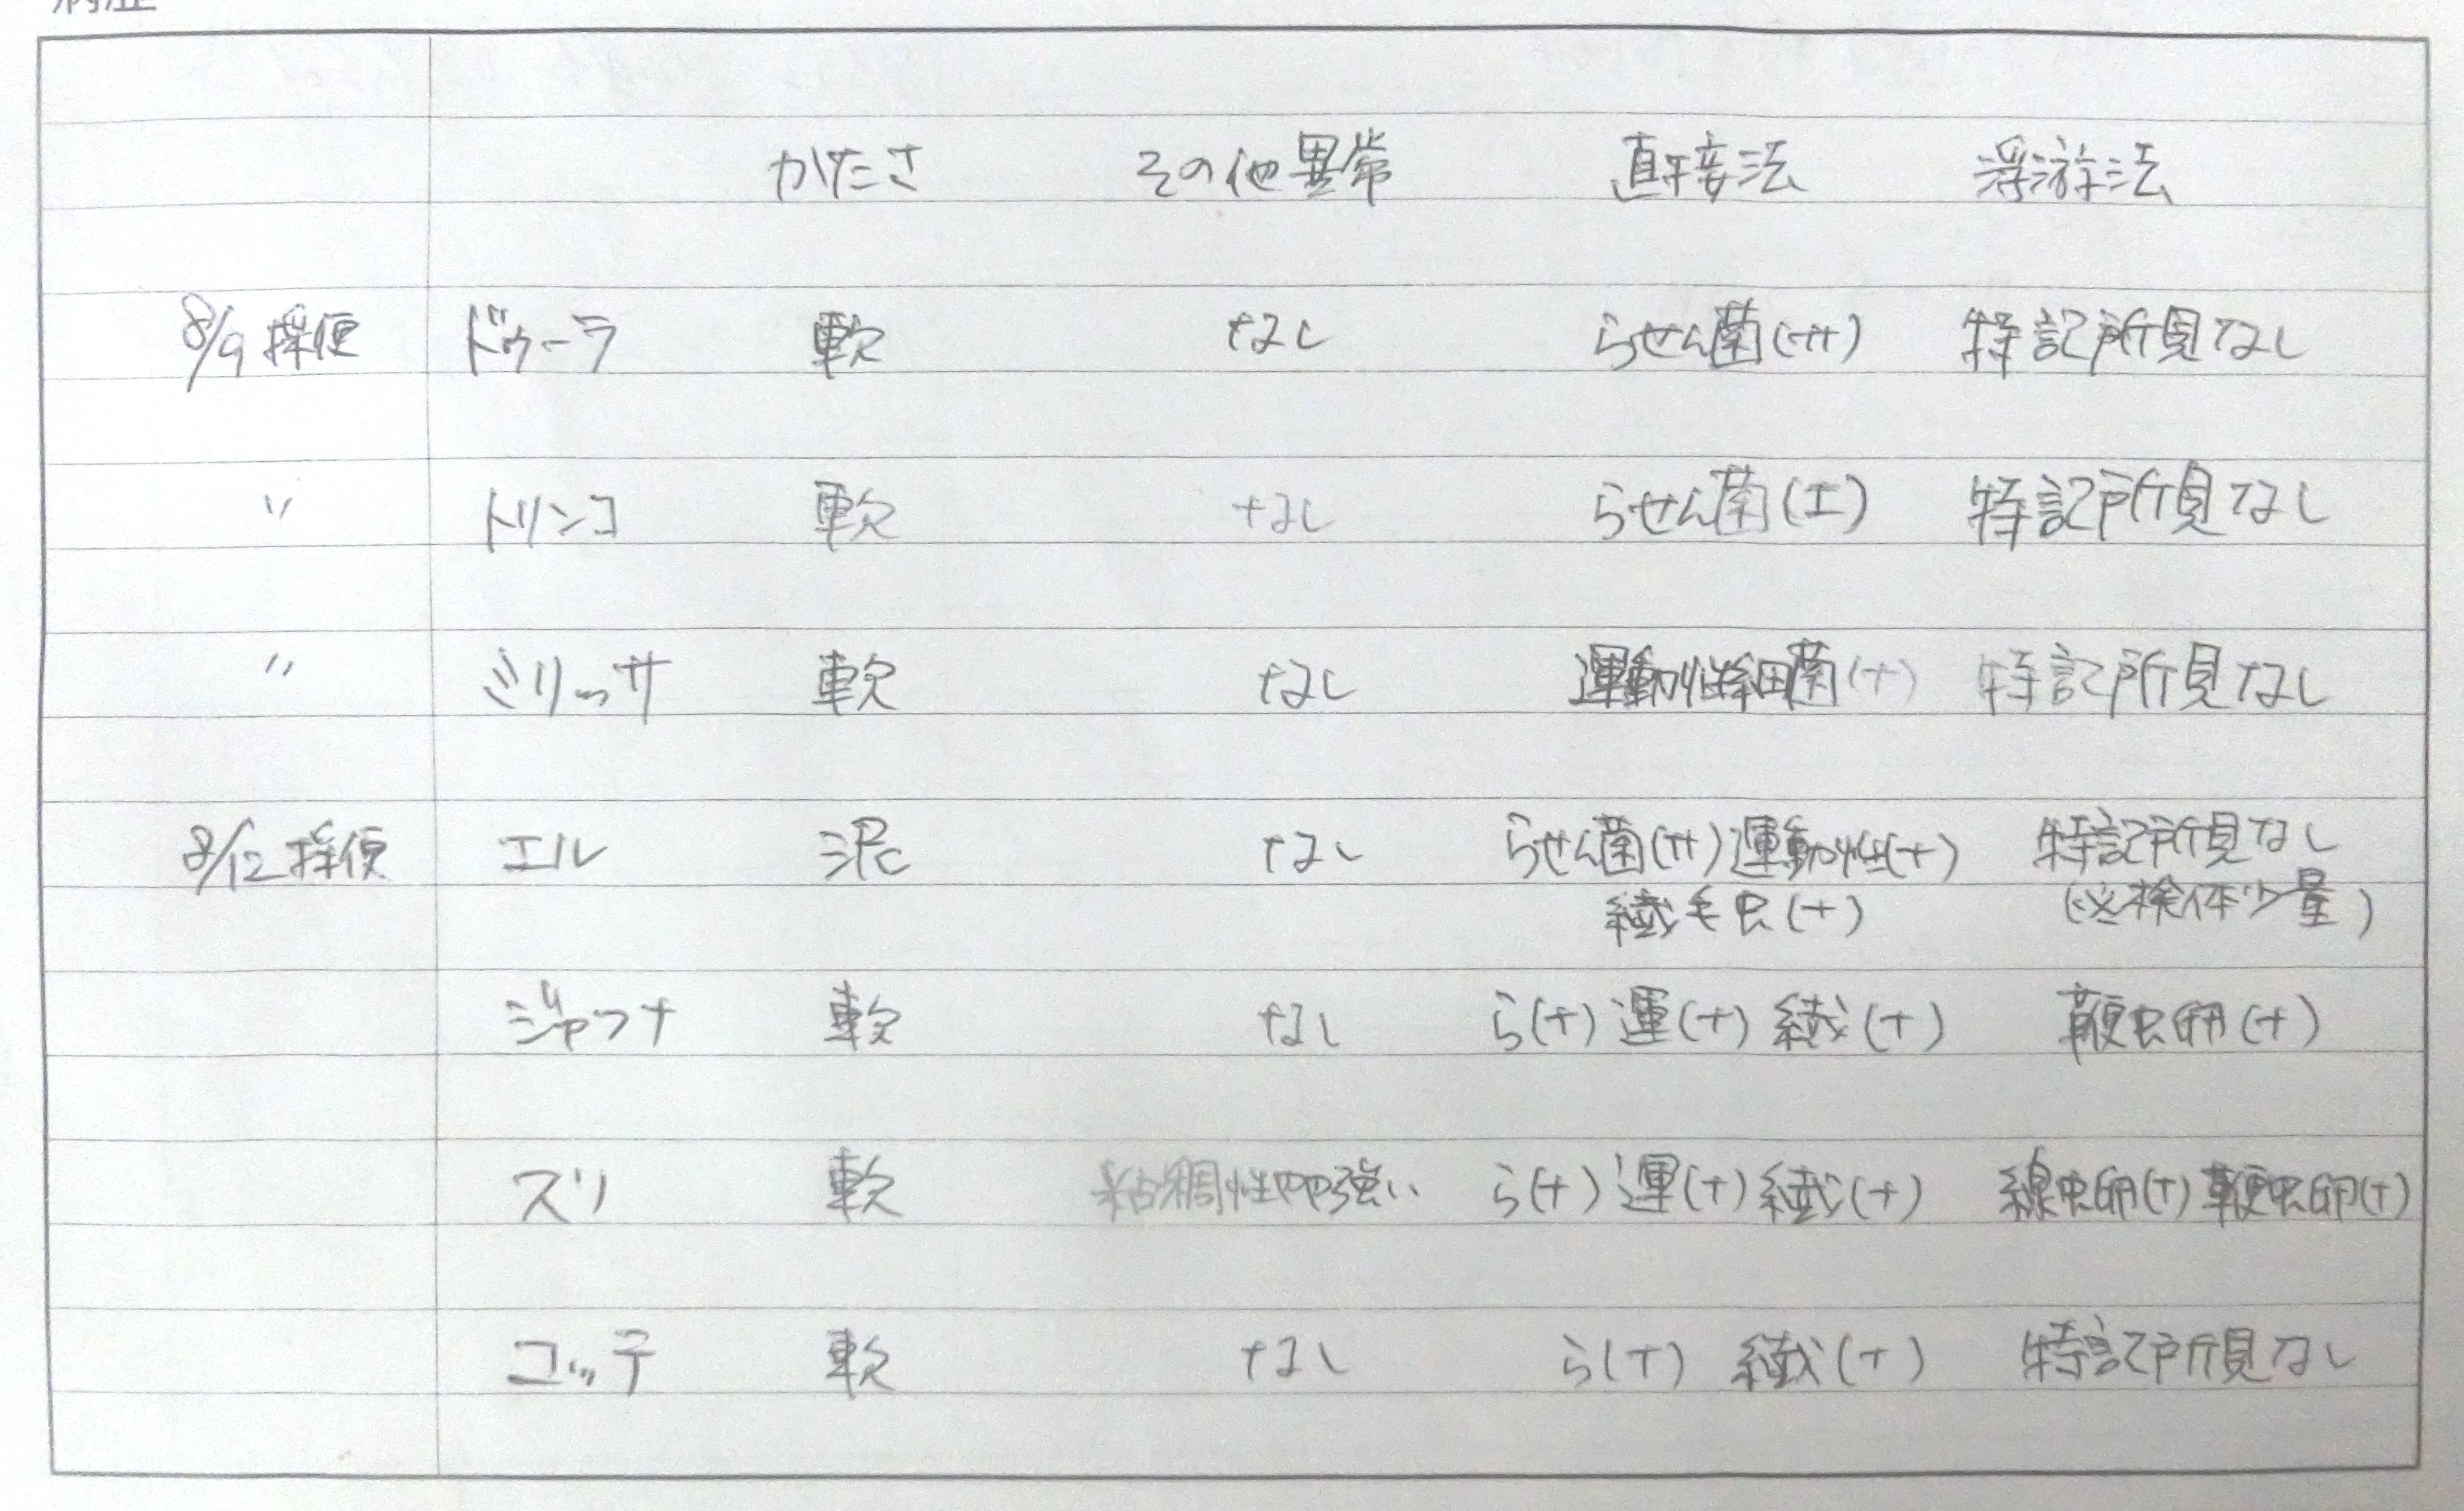 病歴
かたさ その他異常 直接法 浮游法
8/9 採便 ドゥーラ 軟 なし らせん菌(++) 特記所見なし
〃 トリンコ 軟 なし らせん菌(±) 特記所見なし
〃 ミリッサ 軟 なし 運動性細菌(+) 特記所見なし
8/12 採便 エル 泥 なし らせん菌(++) 運動性(+) 特記所見なし
繊毛虫(+) (※検体少量)
ジャフナ 軟 なし ら(+) 運(+) 繊(+) 鞭虫卵(+)
スリ 軟 粘稠性やや強い ら(+) 運(+) 繊(+) 線虫卵(+) 鞭虫卵(+)
コッテ 軟 なし ら(+) 繊(+) 特記所見なし